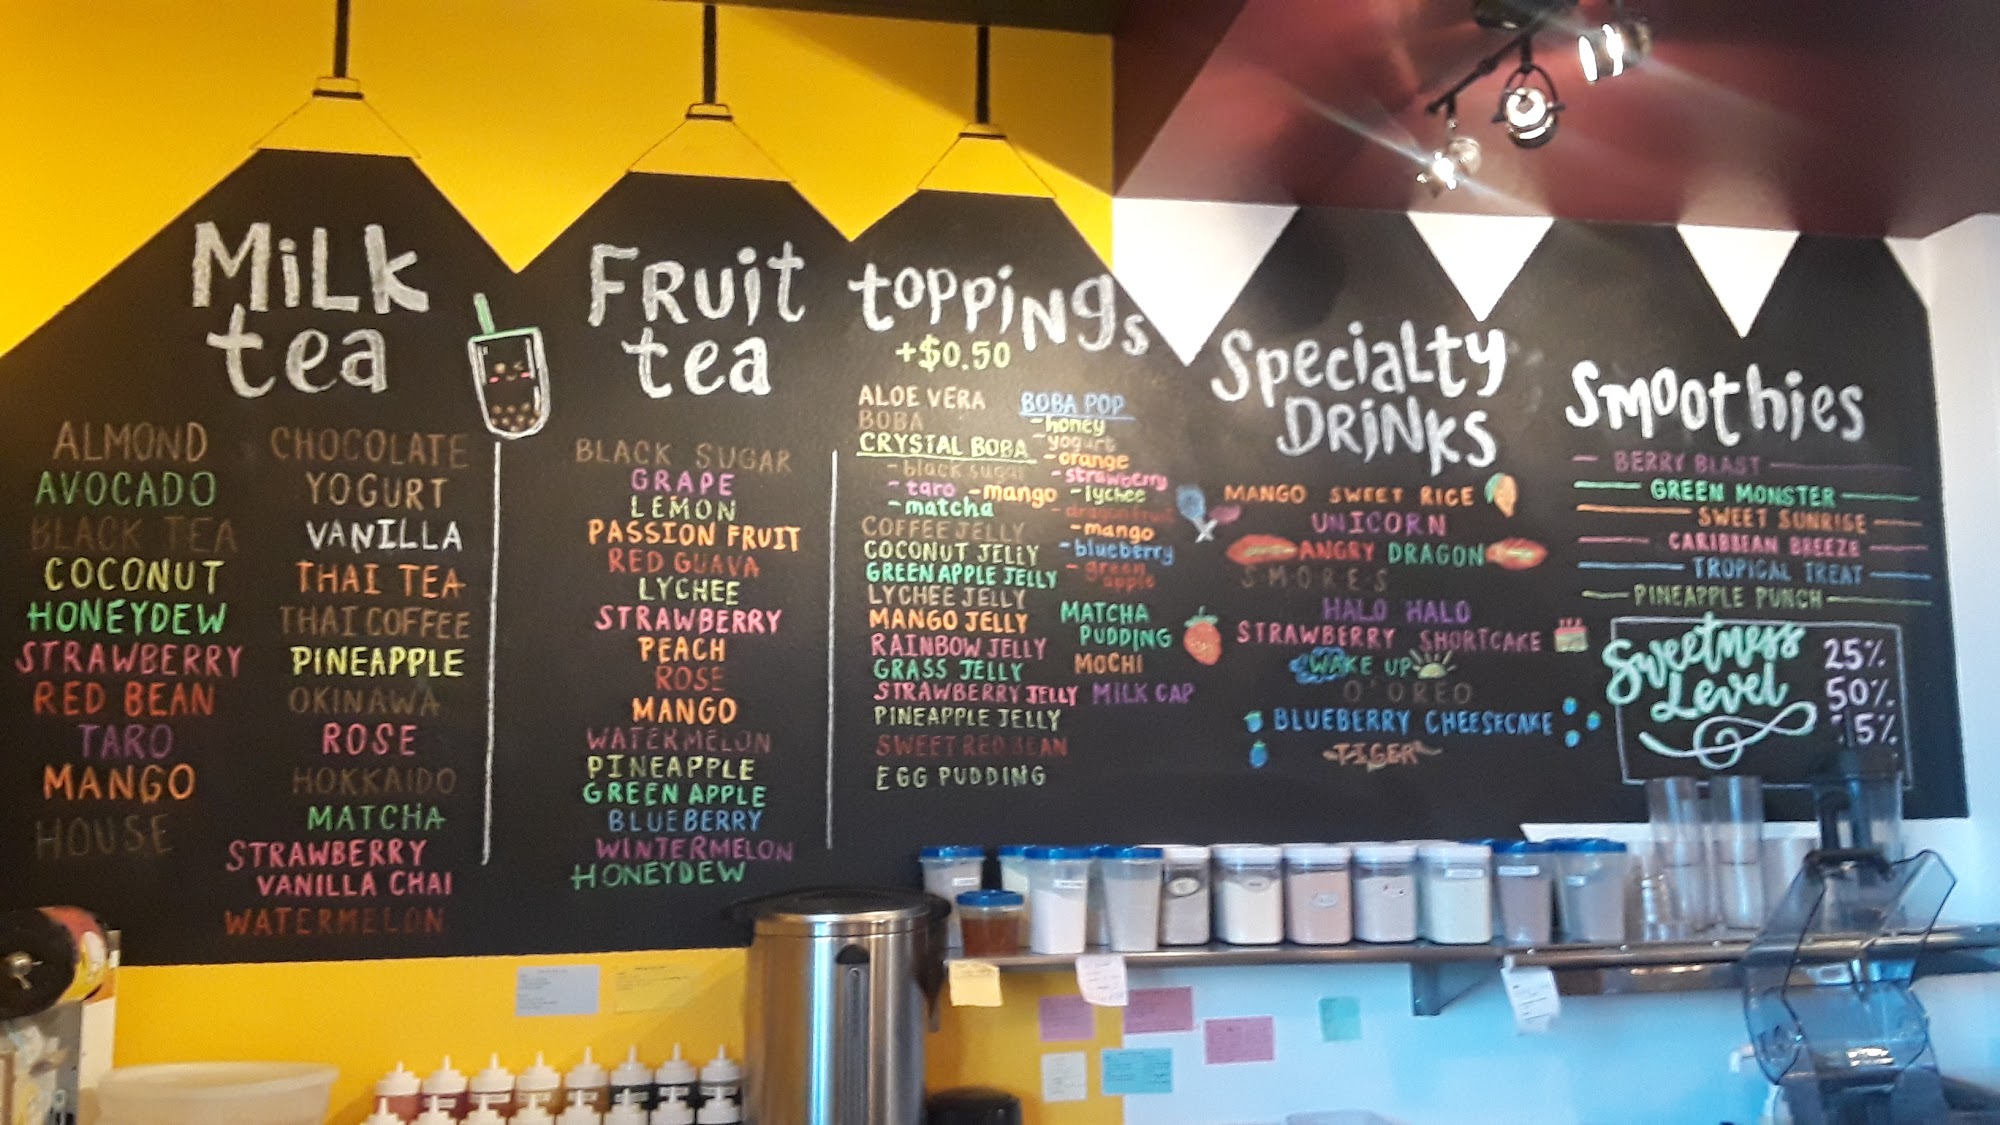 MiLK
tea
ALMOND
AVOCADO
BLACK TEA
COCONUT
HONEYDEW
STRAWBERRY
RED BEAN
TARO
MANGO
HOUSE
CHOCOLATE
YOGURT
VANILLA
THAI TEA
THAI COFFEE
PINEAPPLE
OKINAWA
ROSE
HOKKAIDO
MATCHA
STRAWBERRY
VANILLA CHAI
WATERMELON
FRUit
tea
BLACK SUGAR
GRAPE
LEMON
PASSION FRUIT
RED GUAVA
LYCHEE
STRAWBERRY
PEACH
ROSE
MANGO
WATERMELON
PINEAPPLE
GREEN APPLE
BLUEBERRY
WINTERMELON
HONEYDEW
toppiNgs
+$0.50
ALOE VERA
BOBA
CRYSTAL BOBA
- black sugar
- taro - mango
- matcha
COFFEE JELLY
COCONUT JELLY
GREEN APPLE JELLY
LYCHEE JELLY
MANGO JELLY
RAINBOW JELLY
GRASS JELLY
STRAWBERRY JELLY
PINEAPPLE JELLY
SWEET RED BEAN
EGG PUDDING
BOBA POP
- honey
- yogurt
- orange
- strawberry
- lychee
- dragonfruit
- mango
- blueberry
- green
apple
MATCHA
PUDDING
MOCHI
MILK CAP
SpeciaLty
DRiNKS
MANGO SWEET RICE
UNICORN
ANGRY DRAGON
S'MORES
HALO HALO
STRAWBERRY SHORTCAKE
WAKE UP
O'OREO
BLUEBERRY CHEESECAKE
TIGER
Smoothies
BERRY BLAST
GREEN MONSTER
SWEET SUNRISE
CARIBBEAN BREEZE
TROPICAL TREAT
PINEAPPLE PUNCH
Sweetness
Level
25%
50%
5%